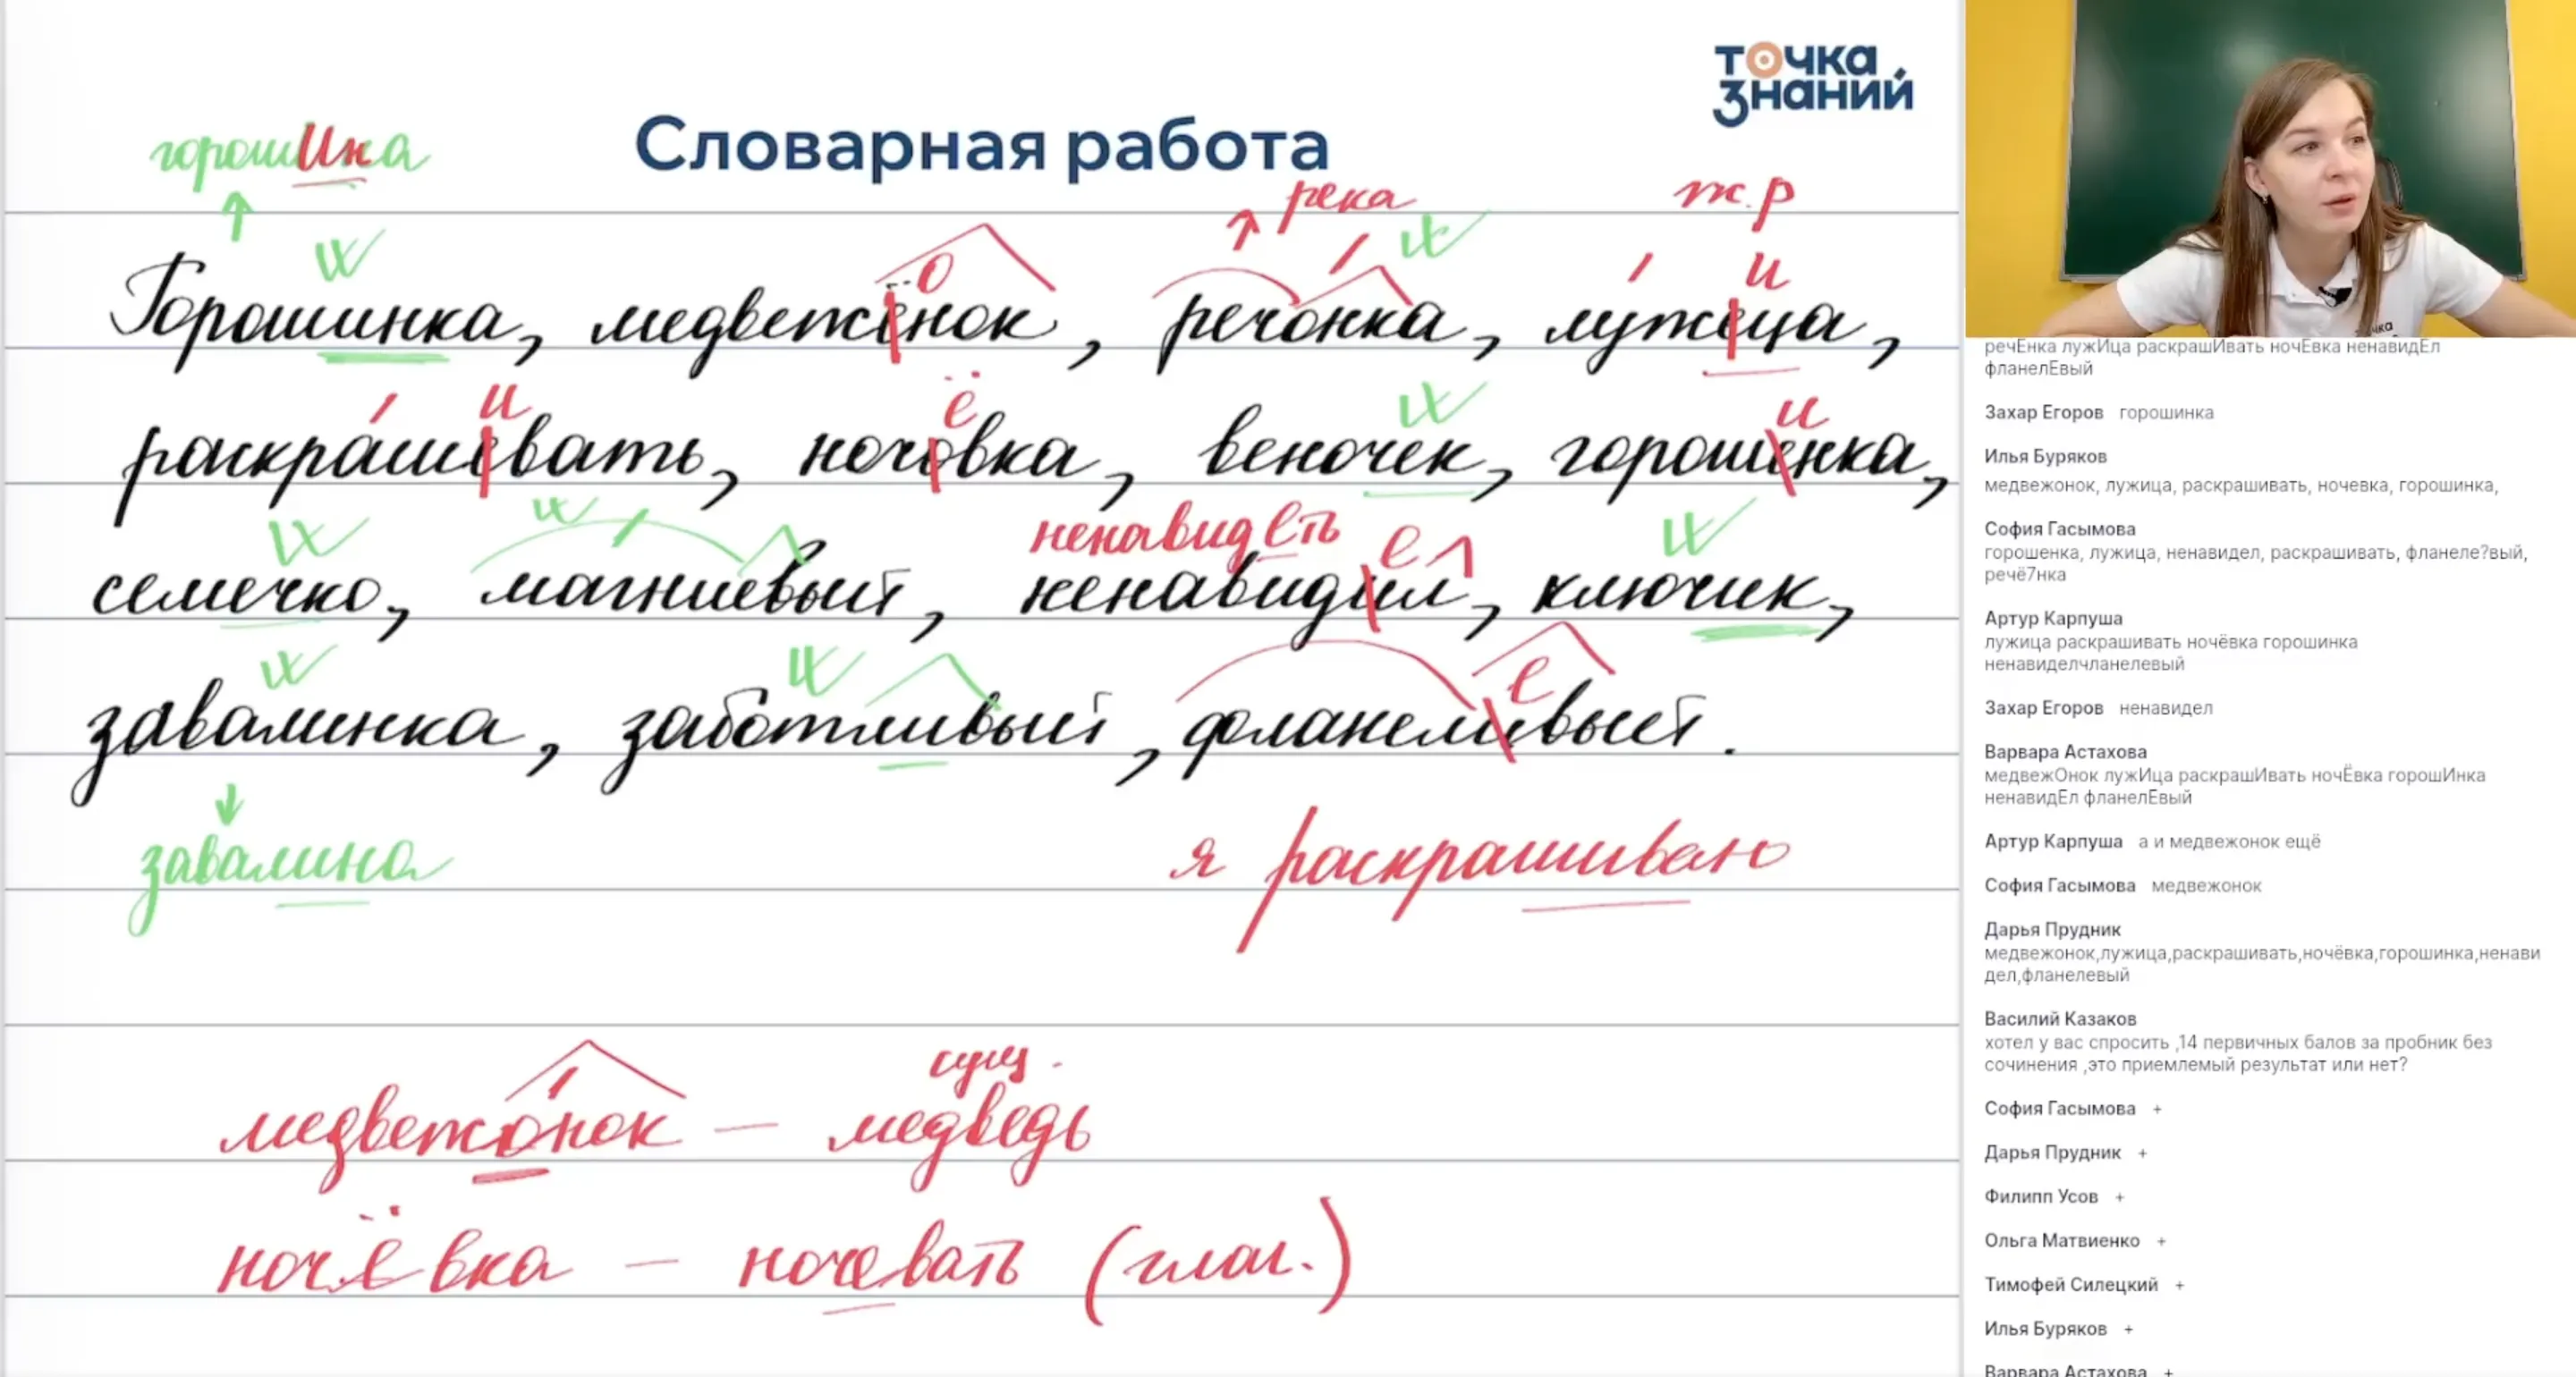 точка
знаний
Словарная работа
горошИнка
река
ж.р
Горошинка, медвежёнок, речонка, лужеца,
о
и
раскрашевать, ночовка, веночек, горошенка,
и
ё
и
семечко, магниевый, ненавидил, ключик,
ненавидеть
е
завалинка, заботливый, фланеливый.
е
завалина
я раскрашиваю
сущ.
медвежонок – медведь
ночёвка – ночевать (глаг.)
речЁнка лужИца раскрашИвать ночЁвка ненавидЕл
фланелЕвый
Захар Егоров горошинка
Илья Буряков
медвежонок, лужица, раскрашивать, ночевка, горошинка,
София Гасымова
горошенка, лужица, ненавидел, раскрашивать, фланеле?вый,
речё7нка
Артур Карпуша
лужица раскрашивать ночёвка горошинка
ненавиделчланелевый
Захар Егоров ненавидел
Варвара Астахова
медвежОнок лужИца раскрашИвать ночЁвка горошИнка
ненавидЕл фланелЕвый
Артур Карпуша а и медвежонок ещё
София Гасымова медвежонок
Дарья Прудник
медвежонок,лужица,раскрашивать,ночёвка,горошинка,ненави
дел,фланелевый
Василий Казаков
хотел у вас спросить ,14 первичных балов за пробник без
сочинения ,это приемлемый результат или нет?
София Гасымова +
Дарья Прудник +
Филипп Усов +
Ольга Матвиенко +
Тимофей Силецкий +
Илья Буряков +
Варвара Астахова +